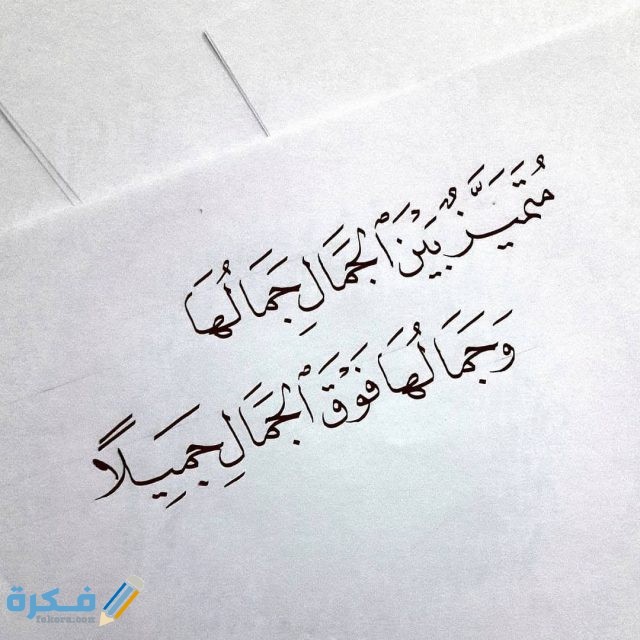 مُتَمَيِّزٌ بَيْنَ ٱلْجَمَالِ جَمَالُهَا
وَجَمَالُهَا فَوْقَ ٱلْجَمَالِ جَمِيلًا
فكرة
fekera.com